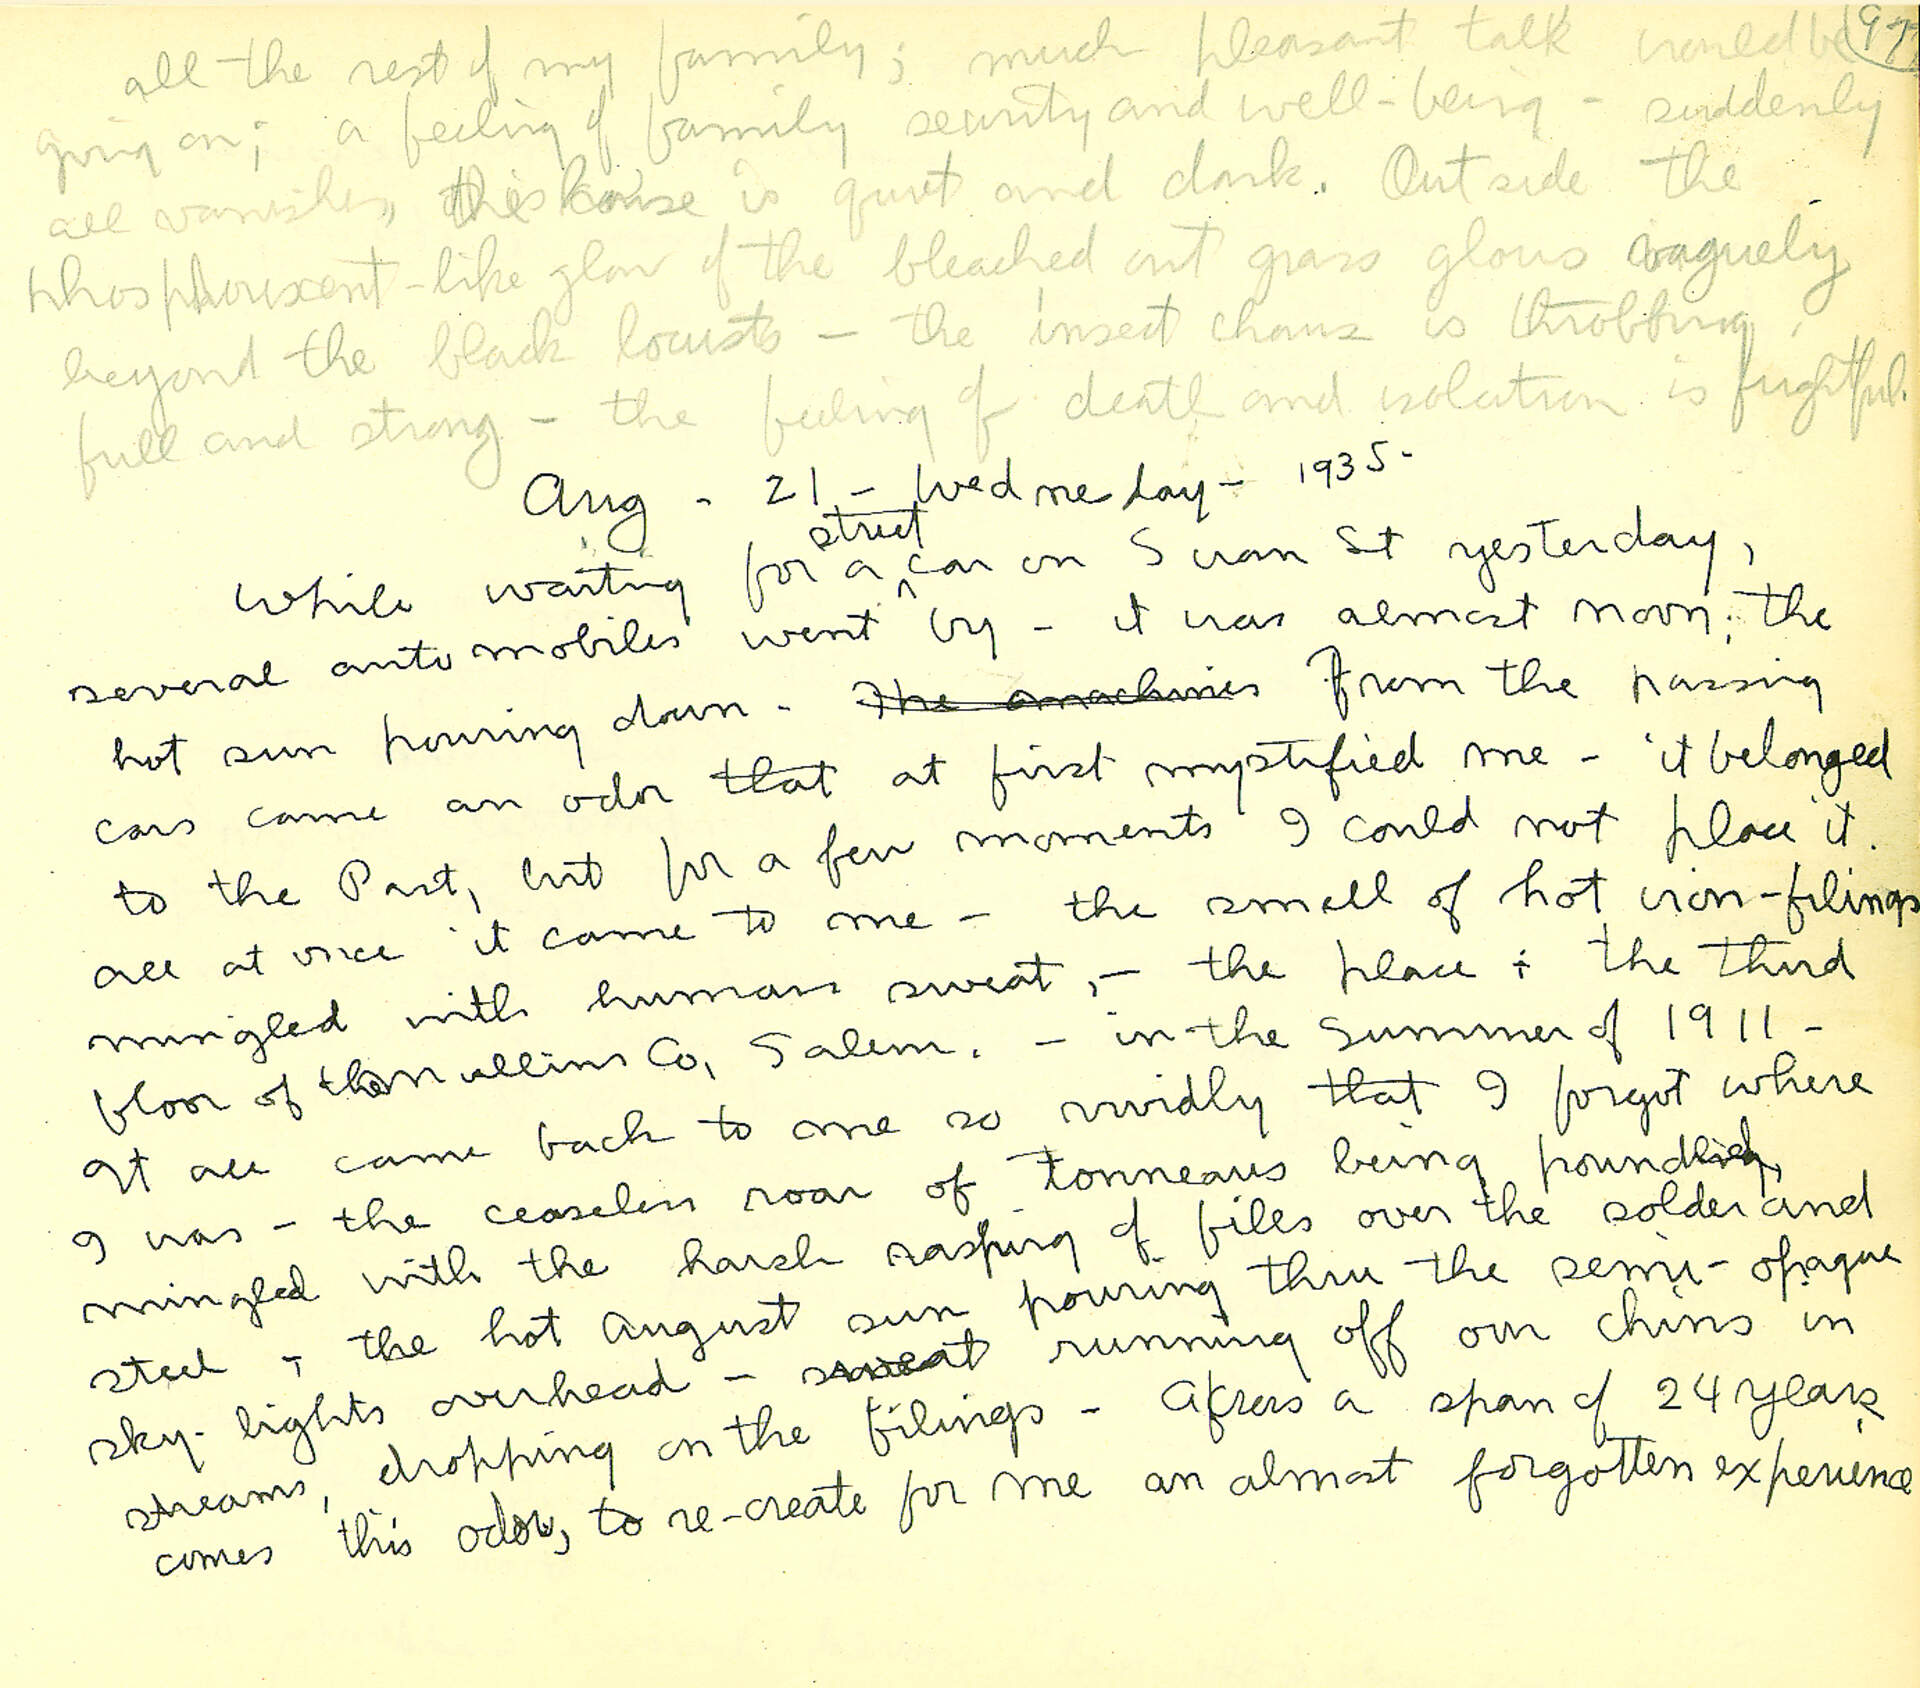 all the rest of my family; much pleasant talk would be
going on; a feeling of family security and well-being - suddenly
all vanishes, this house is quiet and dark. Outside the
phosphorescent-like glow of the bleached out grass glows vaguely
beyond the black locusts - the insect chorus is throbbing,
full and strong - the feeling of death and isolation is frightful.
Aug - 21 - Wednesday - 1935 -
street
While waiting for a ^ car on Swan St yesterday,
several automobiles went by - it was almost noon; the
hot sun pouring down - The machines From the passing
cars came an odor that at first mystified me - it belonged
to the Past, but for a few moments I could not place it.
all at once it came to me - the smell of hot iron-filings
mingled with human sweat, - the place : the third
floor of the Mullins Co, Salem. - in the summer of 1911 -
It all came back to me so vividly that I forgot where
I was - the ceaseless roar of tonneaus being pounded,
mingled with the harsh rasping of files over the solder and
steel - the hot August sun pouring thru the semi-opaque
sky-lights overhead - sweat running off our chins in
streams, dropping on the filings - Across a span of 24 years
comes this odor, to re-create for me an almost forgotten experience